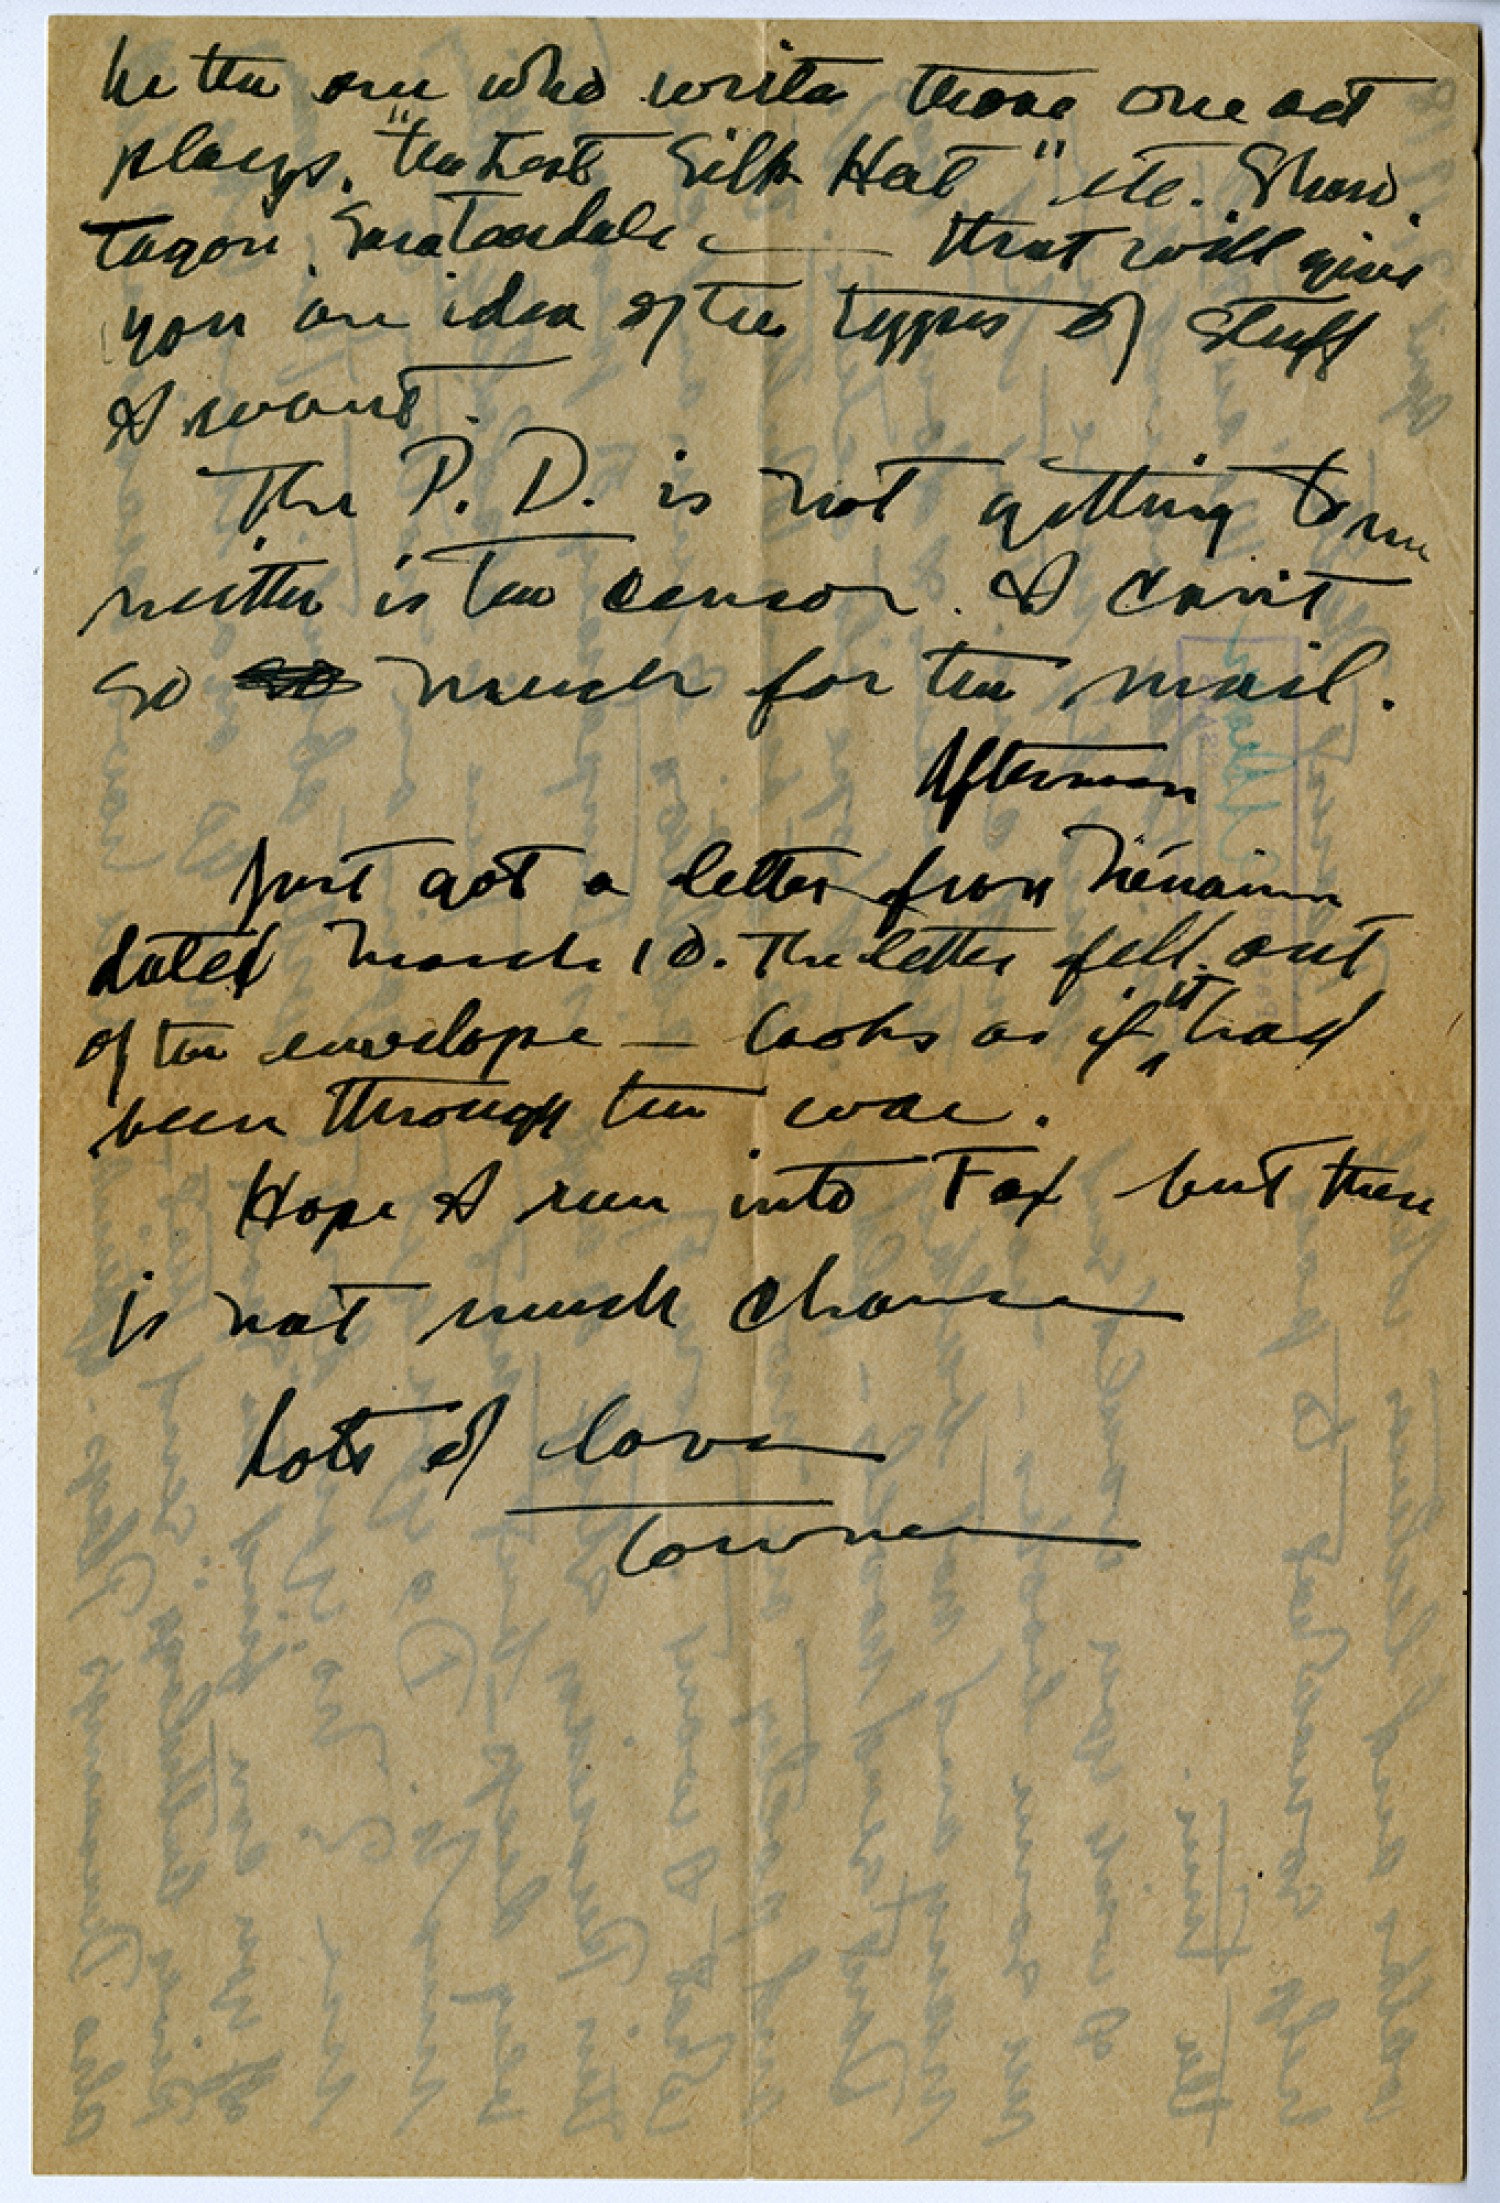 be the one who writes those one act
plays. "the Lost Silk Hat" etc. Shaw.
Tagore, — that will give
you an idea of the types of stuff
I want.
The P. D. is not getting to me
neither is the censor. I can't
so much for the mail.
Afternoon
Just got a letter from
dated March 10. The letter fell out
of the envelope — looks as if it had
been through the war.
Hope I run into Fox but there
is not much chance
Lots of love